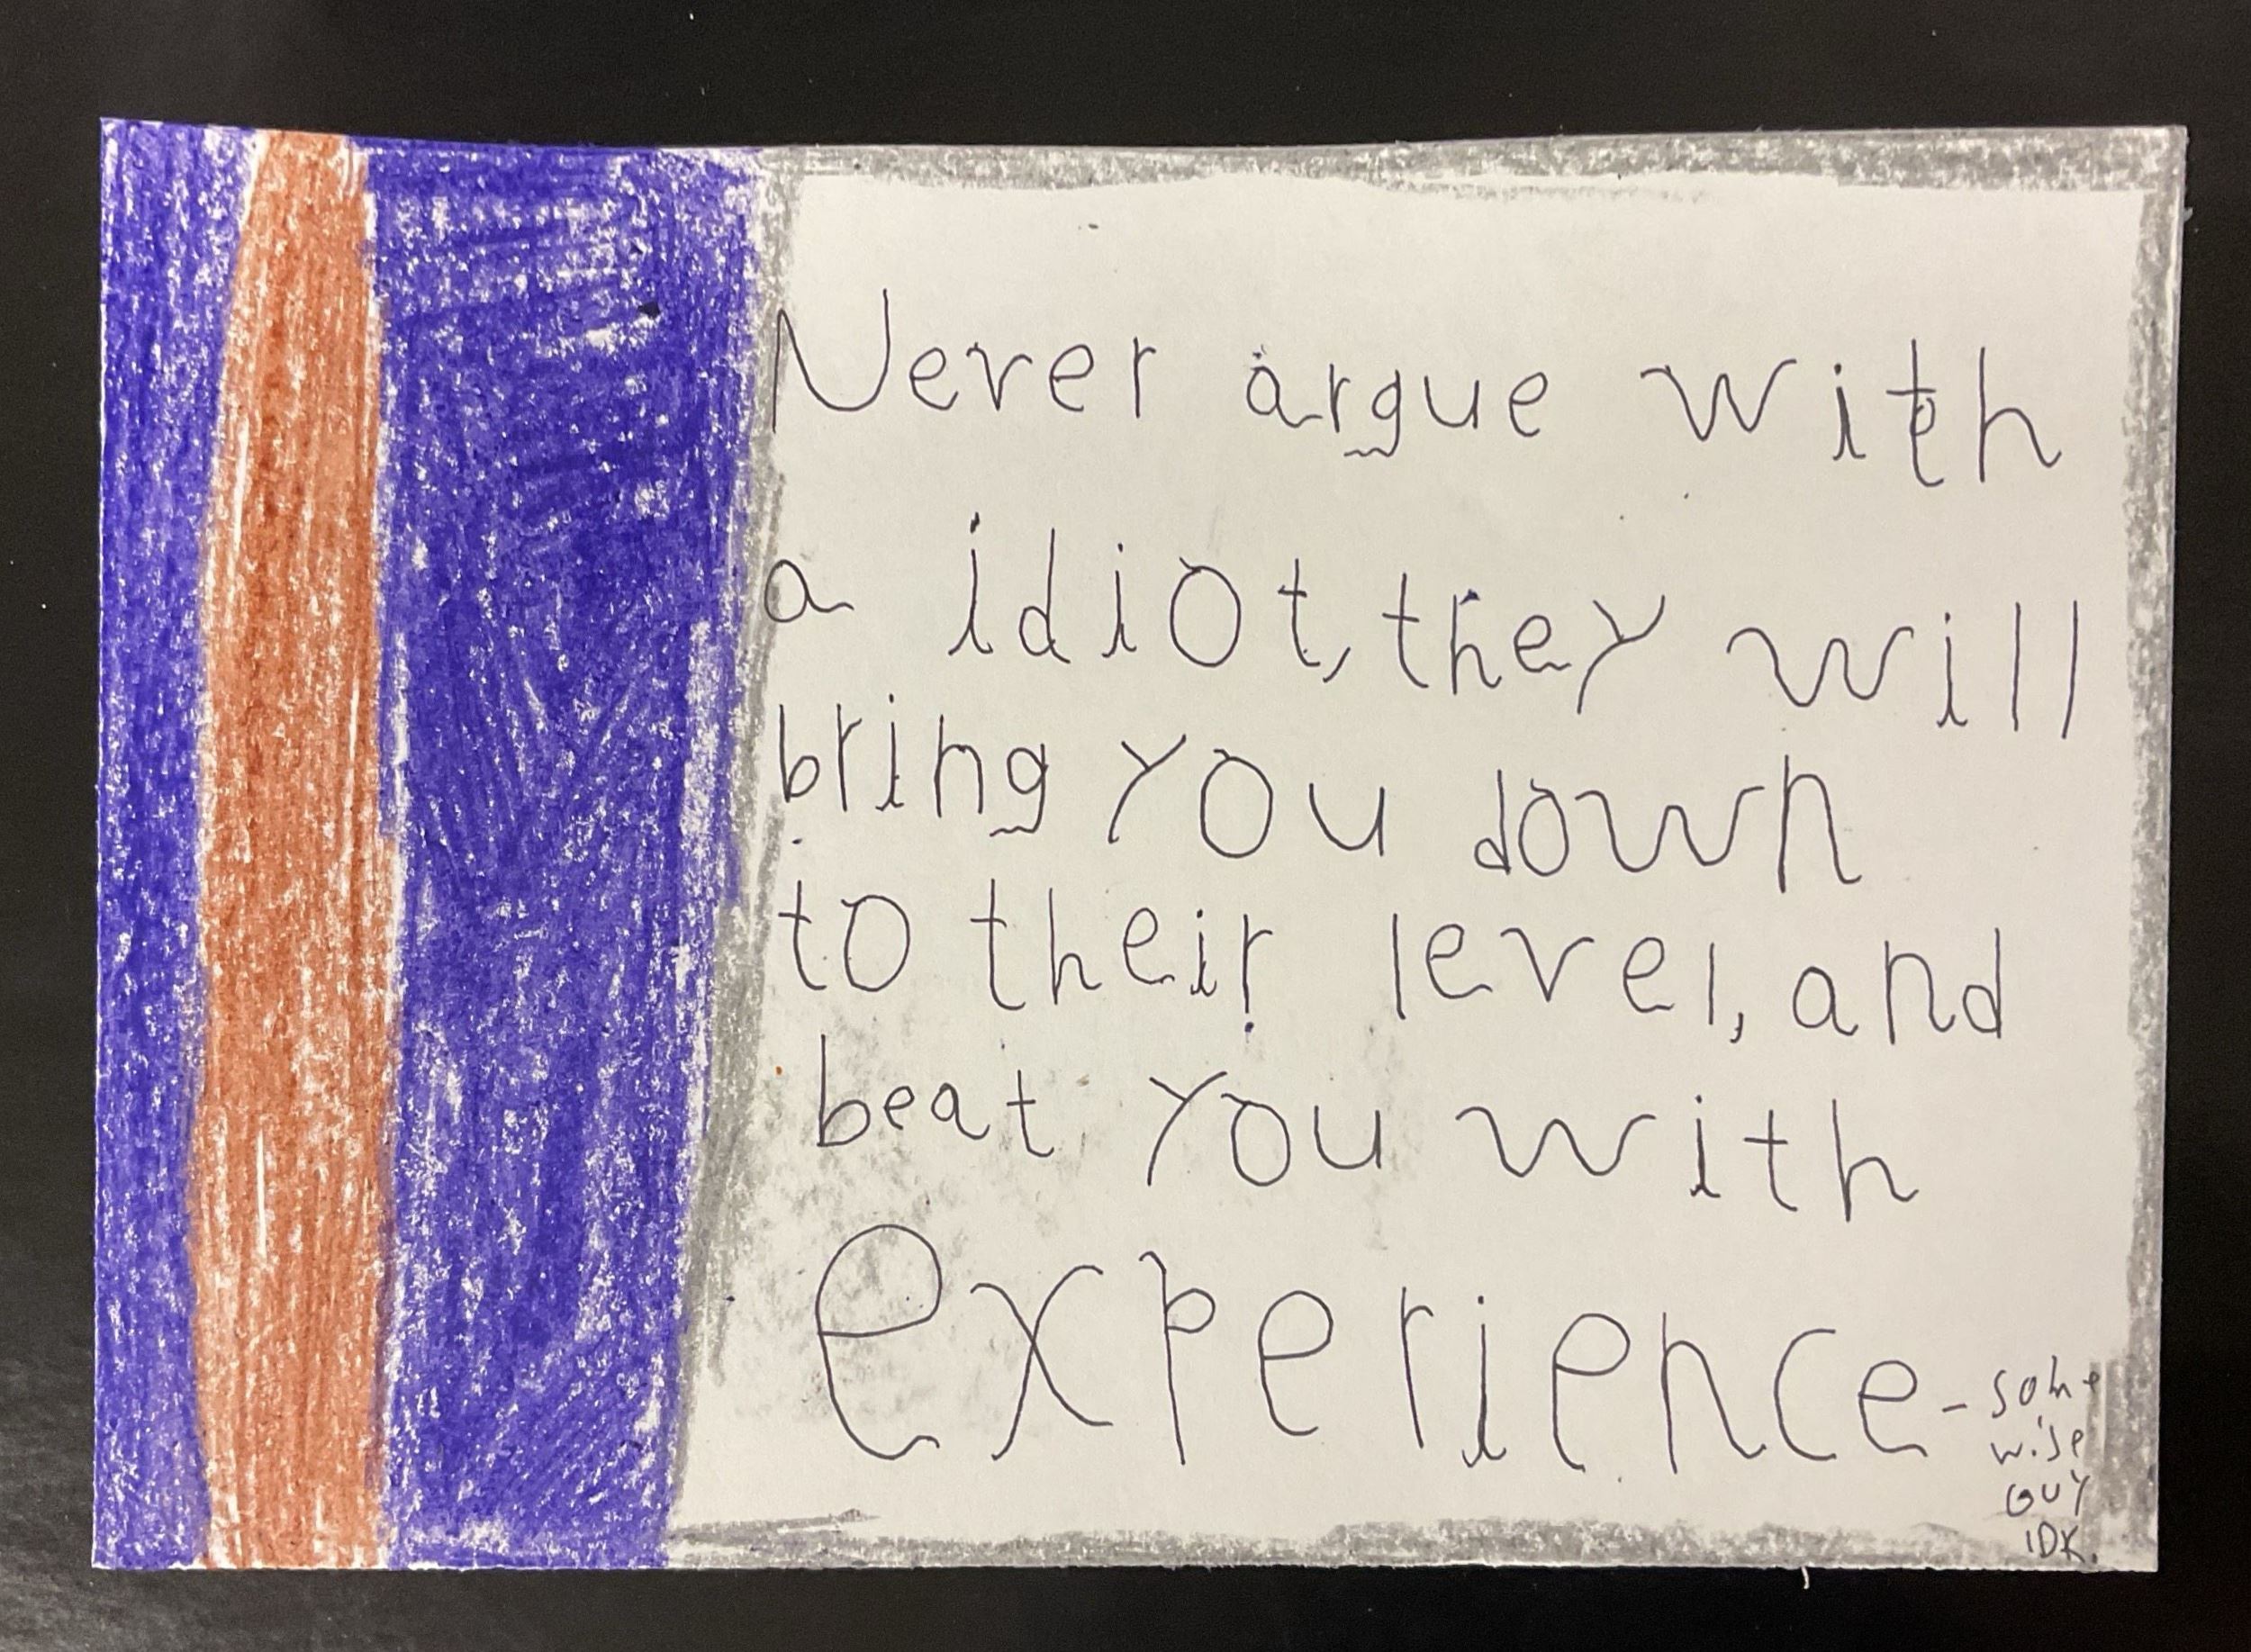 Never argue with
a idiot, they will
bring you down
to their level, and
beat you with
experience - some
wise
GUY
IDK.